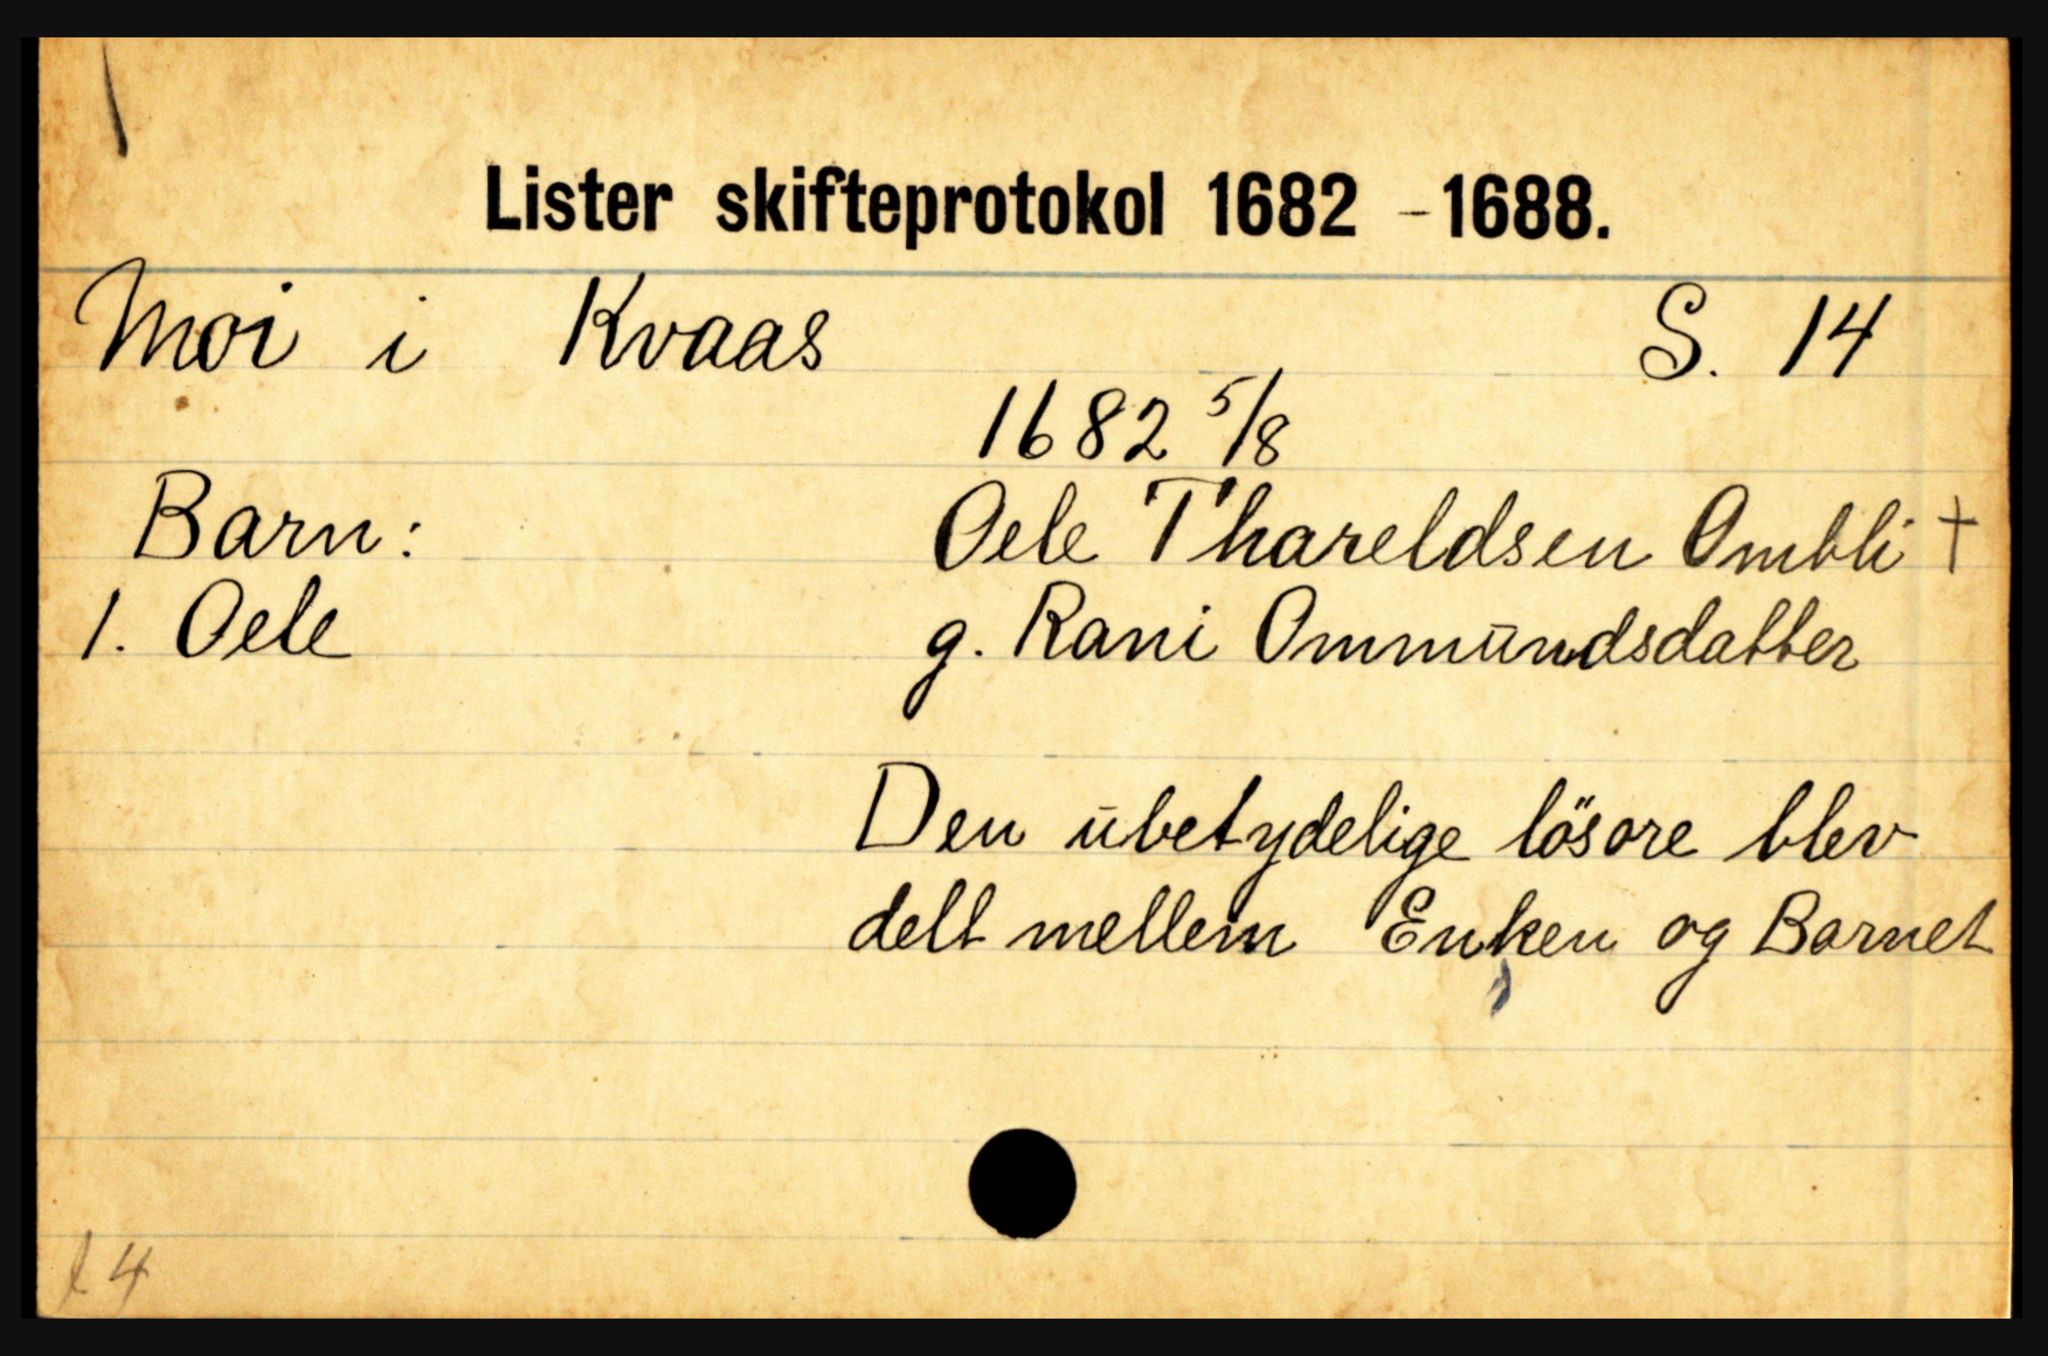 Lister skifteprotokol 1682 - 1688.
Moi i Kvaas S. 14
1682 5/8
Barn: Oele Thareldsen Ombli †
1. Oele g. Rani Ommŭndsdatter
Den ŭbetydelige lösore blev
delt mellem Enken og Barnet
14